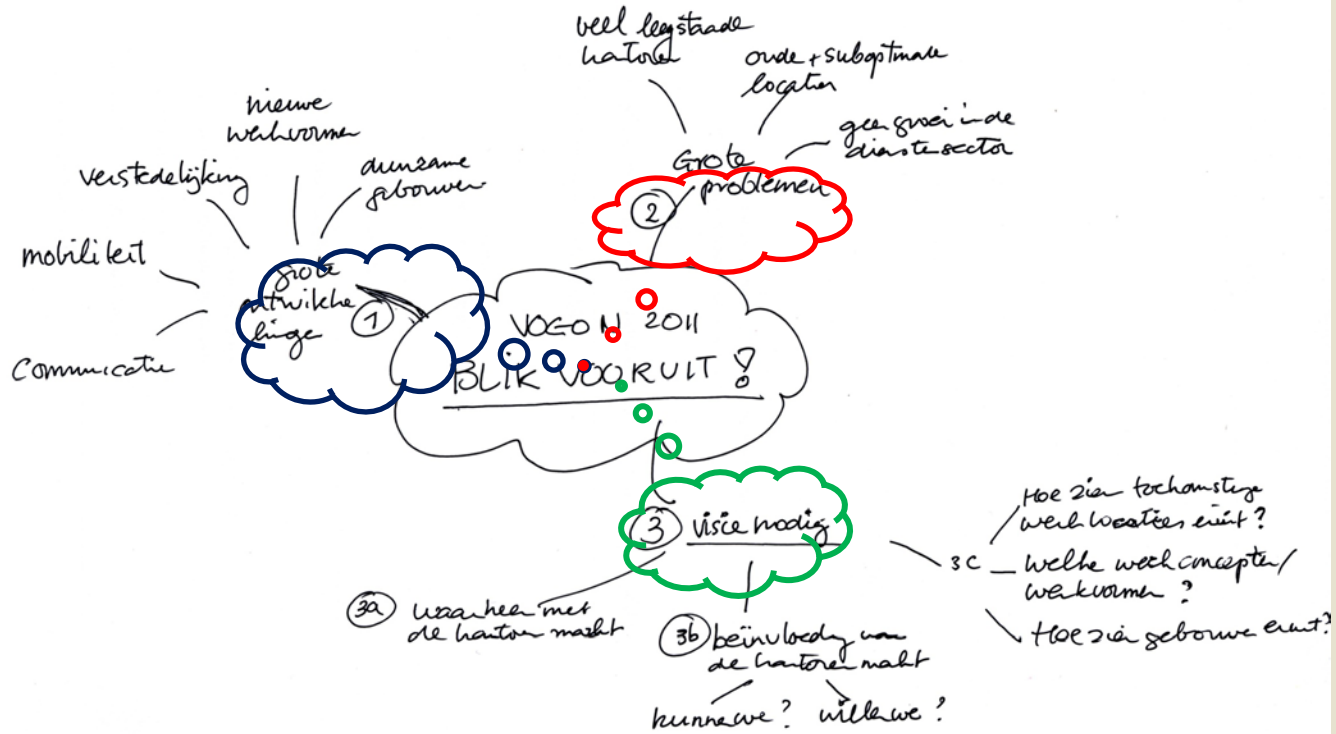 VOGON 2011
BLIK VOORUIT !
1
grote
ontwikke
linge
communicatie
mobiliteit
verstedelijking
nieuwe
werkvormen
duurzame
gebouwen
2
Grote
problemen
veel leegstaande
kantoren
oude + suboptimale
locaties
geen groei in de
dienstensector
3
visie nodig
3a
waarheen met
de kantoren markt
3b
beïnvloeding van
de kantoren markt
kunnen we ?
willen we ?
3C
Hoe zien toekomstige
werklocaties eruit ?
welke werkconcepten /
werkvormen ?
Hoe zien gebouwen eruit ?